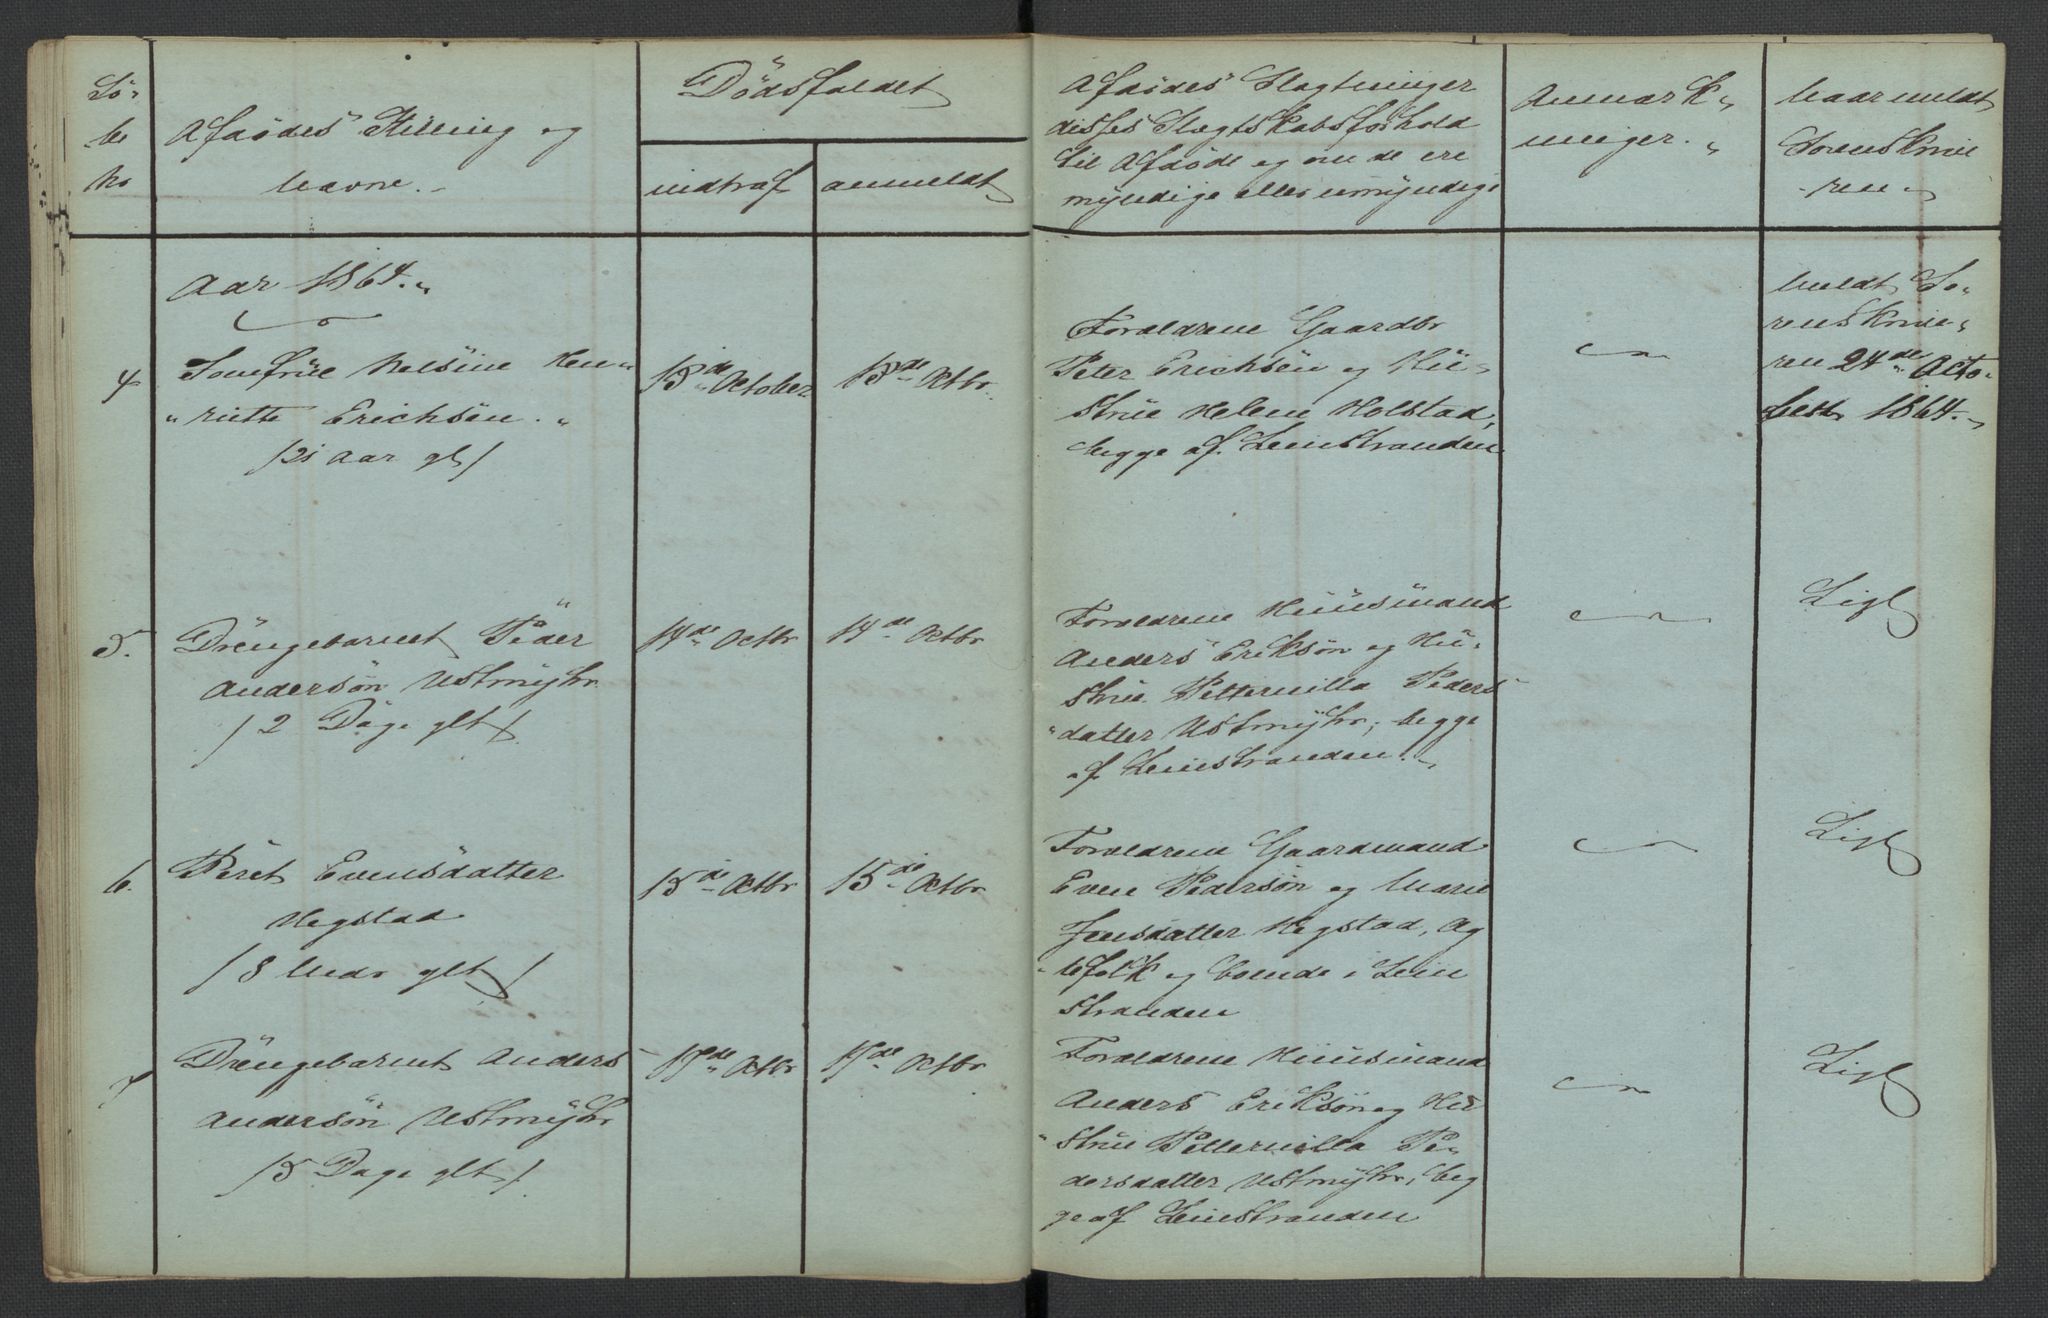 Lö-
be
No
Afdödes Stilling og
Navne.
Dödsfaldet
indtraf
anmeldt
Afdödes Slægtninger
disses Slægtskabsforhold
til Afdöde og om de ere
myndige eller umyndige
Anmærk-
ninger.
Naar meldt
Sorenskrive
ren
Aar 1864.
4
Jomfrue Nelsine Hen-
riette Erichsen.
/21 Aar gl/
13de October
13de Octbr.
Forældrene Gaardbr
Peter Erichsen og Hu-
strue Helene Holstad,
begge af Leinstranden
Meldt So-
renskrive-
ren 24de Octo-
ber 1864.
5.
Drengebarnet Peder
Andersøn Ustmyhr
/2 Dage glt/
14de Octbr
14de Octbr
Forældrene Huusmand
Anders Eriksøn og Hu-
strue Petternilla Peders
datter Ustmyhr, begge
af Leinstranden.
Ligt
6.
Beret Evensdatter
Hegstad
/8 Mdr glt/
15de Octbr
15de Octbr
Forældrene Gaardmand
Even Pedersøn og Marie
Jensdatter Hegstad, Æg
tefolk og boende i Lein
stranden
Ligt
7
Drengebarnet Anders
Andersøn Ustmyhr
/5 Dage glt/
17de Octbr
17de Octbr
Forældrene Huusmand
Anders Eriksøn og Hu
strue Petternilla Pe-
dersdatter Ustmyhr, beg
ge af Leinstranden
Ligt